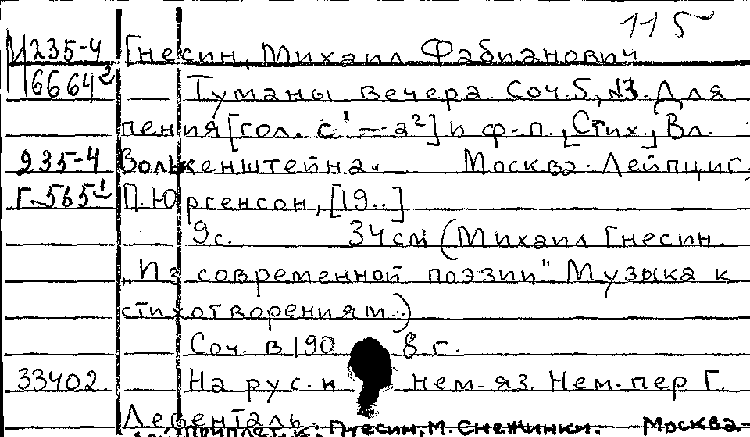 115
М 235-4 Гнесин, Михаил Фабианович
6664² Туманы вечера. Соч. 5, №3. Для
пения [гол. с¹ — а²] и ф-п. [Стих.] Вл.
235-4 Волькенштейна. Москва-Лейпциг,
Г-565¹ П. Юргенсон, [19..]
9с. 34см (Михаил Гнесин.
„Из современной поэзии" Музыка к
стихотворениям.)
Соч. в 1908 г.
33402 На рус. и нем. яз. Нем. пер Г.
Левенталь.
Приплетен к: Гнесин, М. Снежинки. Москва-